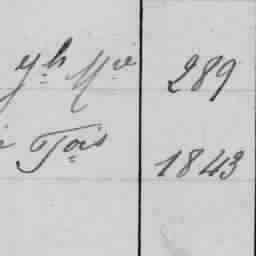 yh Mie 289
Tois 1843